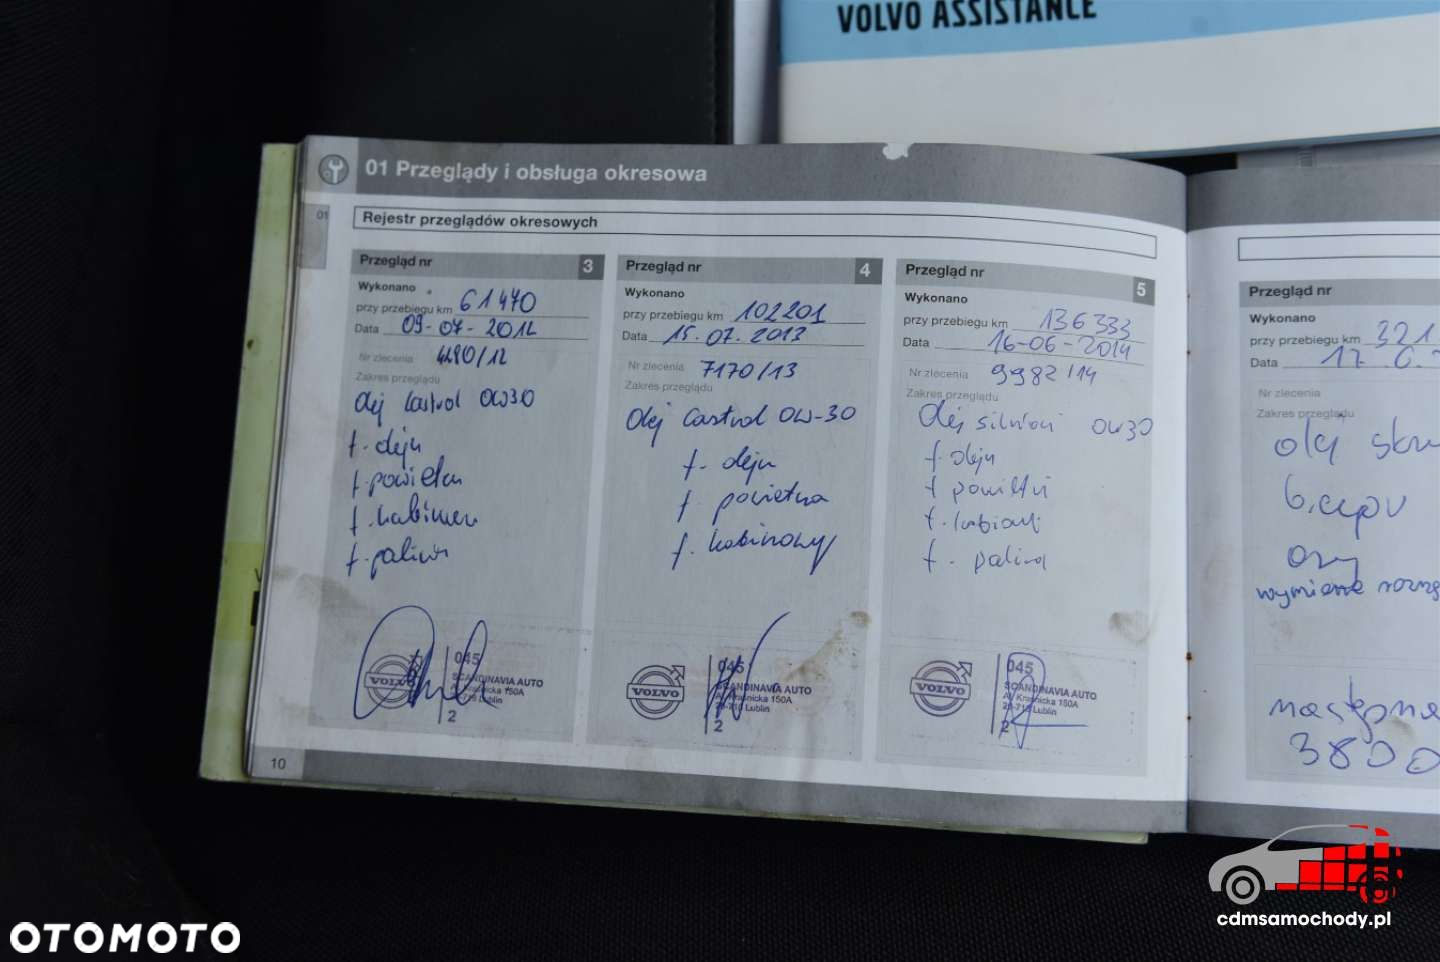 VOLVO ASSISTANCE
01 Przeglądy i obsługa okresowa
01
Rejestr przeglądów okresowych
Przegląd nr 3
Wykonano
przy przebiegu km 61470
Data 09-07-2012
Nr zlecenia 4290/12
Zakres przeglądu
olej Castrol 0W30
f. oleju
f. powietrza
f. kabinowy
f. paliwa
045
VOLVO SCANDINAVIA AUTO
Al. Kraśnicka 150A
20-718 Lublin
2
Przegląd nr 4
Wykonano
przy przebiegu km 102201
Data 15.07.2013
Nr zlecenia 7170/13
Zakres przeglądu
Olej Castrol 0W-30
f. oleju
f. powietrza
f. kabinowy
045
VOLVO SCANDINAVIA AUTO
Al. Kraśnicka 150A
20-718 Lublin
2
Przegląd nr 5
Wykonano
przy przebiegu km 136333
Data 16-06-2014
Nr zlecenia 9982/14
Zakres przeglądu
Olej silnikowy 0W30
f. oleju
f. powietrza
f. kabinowy
f. paliwa
045
VOLVO SCANDINAVIA AUTO
Al. Kraśnicka 150A
20-718 Lublin
2
10
Przegląd nr
Wykonano
przy przebiegu km 321
Data 17.6.
Nr zlecenia
Zakres przeglądu
olej
3800
cdmsamochody.pl
OTOMOTO